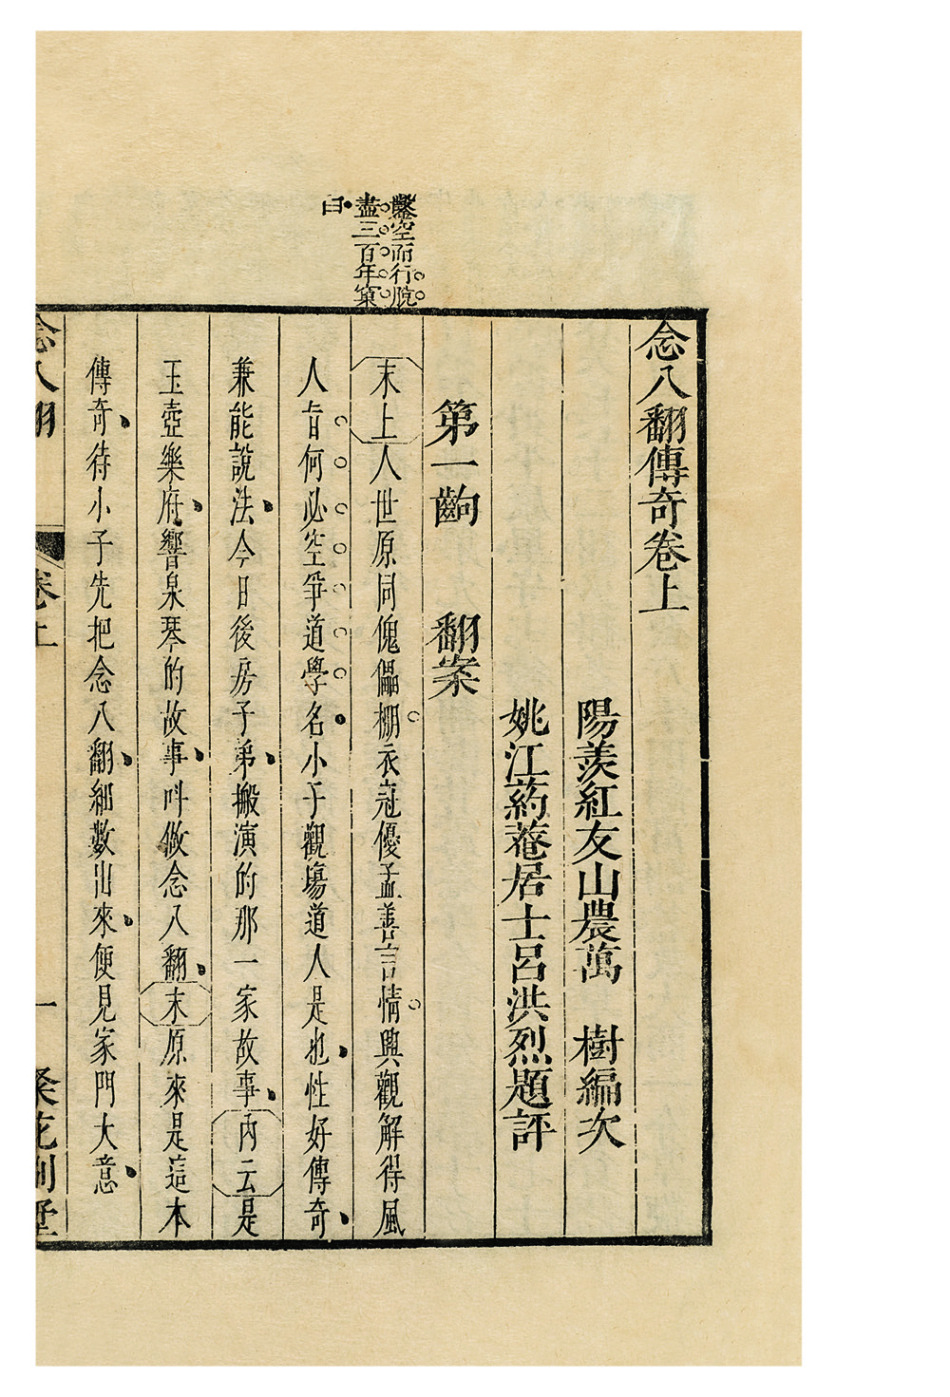 鑿空而行脫
盡三百年窠
臼
念八翻傳奇卷上
陽羨紅友山農萬　樹編次
姚江葯菴居士呂洪烈題評
第一齣　翻案
末上人世原同傀儡棚衣冠優孟善言情興觀解得風
人旨何必空爭道學名小子觀塲道人是也性好傳奇
兼能說法今日後房子弟搬演的那一家故事內云是
玉壺樂府響泉琴的故事呌做念八翻末原來是這本
傳奇待小子先把念八翻細數出來便見家門大意
念八翻　卷上　一　粲花別墅